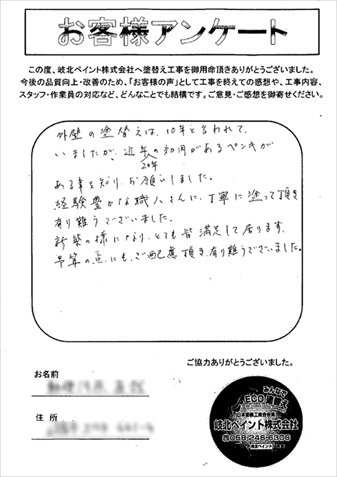 お客様アンケート
この度、岐北ペイント株式会社へ塗替え工事を御用命頂きありがとうございました。
今後の品質向上・改善のため、「お客様の声」として工事を終えての感想や、工事内容、
スタッフ・作業員の対応など、どんなことでも結構です。ご意見・ご感想を御寄せください。
外壁の塗替えは、10年と言われて、
いましたが、近年の効用があるペンキが
20年
ある事を知り、お願いしました。
経験豊かな職人さんに、丁寧に塗って頂き
有り難うございました。
新築の様になり、とても皆満足して居ります。
予算の点にも、ご配慮頂き、有り難うございました。
ご協力ありがとうございました。
お名前
住所
みんなで
ECO
岐北ペイント株式会社
岐北ペイント